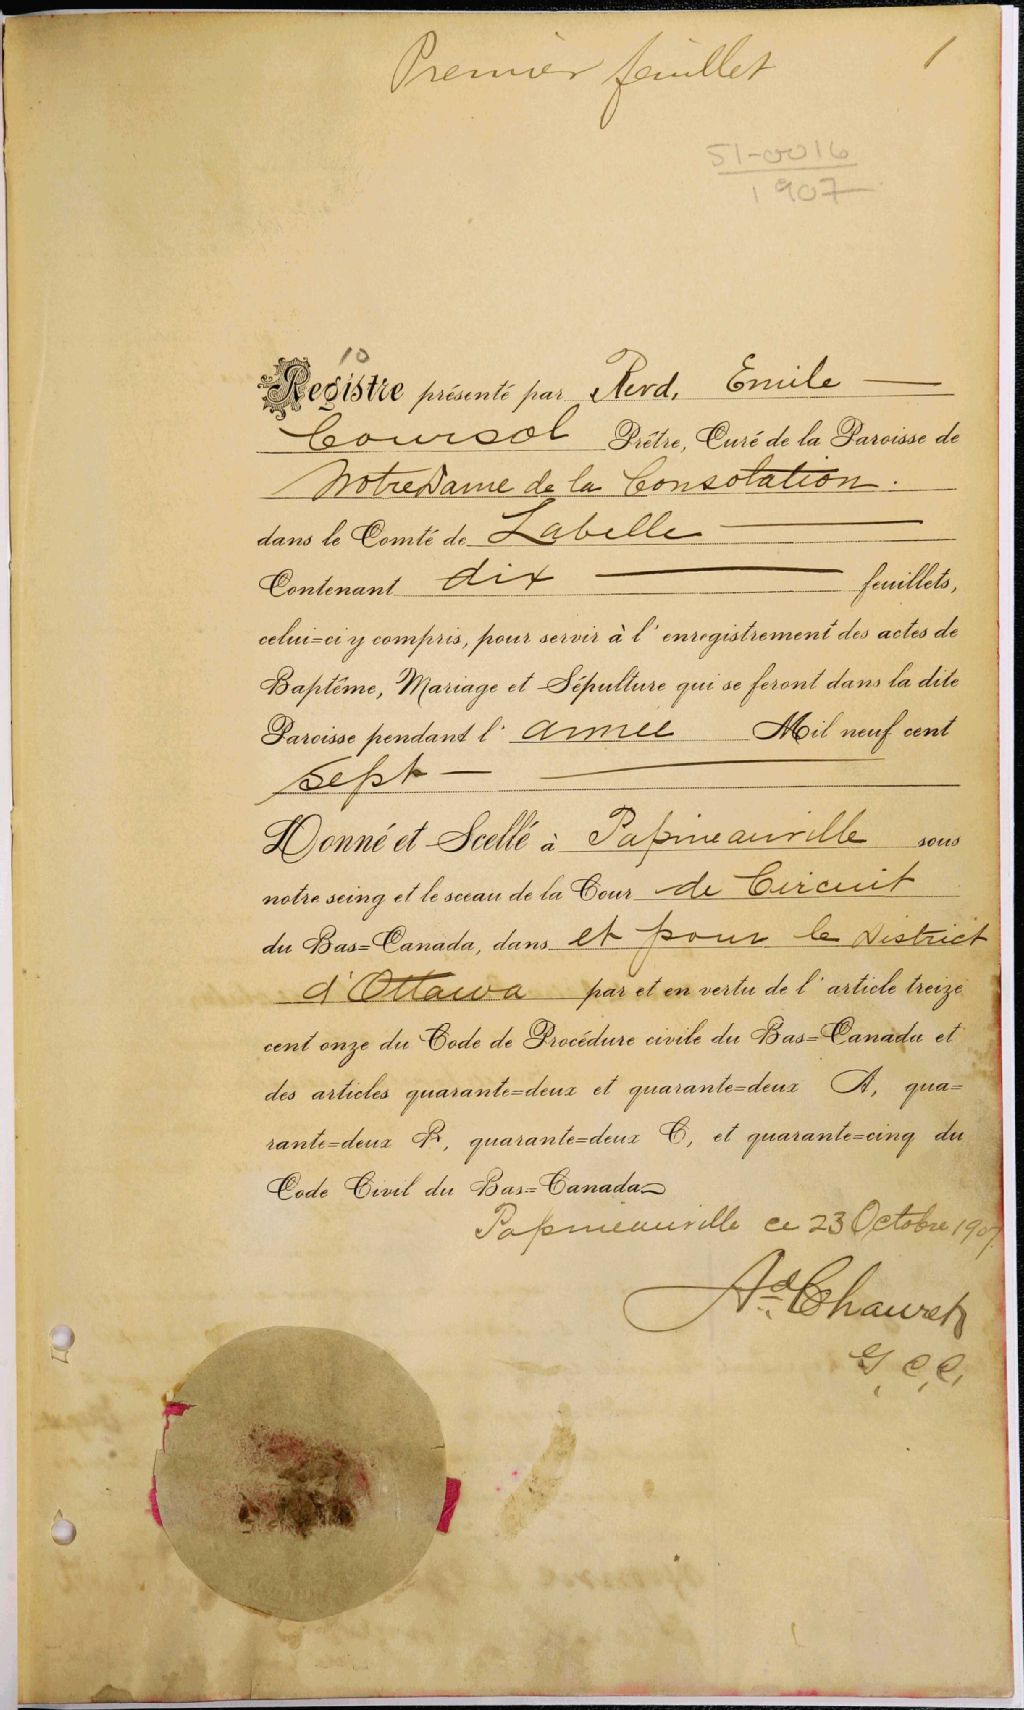 Premier feuillet 1
51-0016
1907
10
Registre présenté par Revd, Emile
Coursol Prêtre, Curé de la Paroisse de
Notre Dame de la Consolation.
dans le Comté de Labelle
Contenant dix feuillets,
celui=ci y compris, pour servir à l'enregistrement des actes de
Baptême, Mariage et Sépulture qui se feront dans la dite
Paroisse pendant l'année Mil neuf cent
sept
Donné et Scellé à Papineauville sous
notre seing et le sceau de la Cour de Circuit
du Bas=Canada, dans et pour le District
d'Ottawa par et en vertu de l'article treize
cent onze du Code de Procédure civile du Bas=Canada et
des articles quarante=deux et quarante=deux A, qua=
rante=deux B, quarante=deux C, et quarante=cinq du
Code Civil du Bas=Canada
Papineauville ce 23 Octobre 1907
Ad. Chauret
G, C, C,